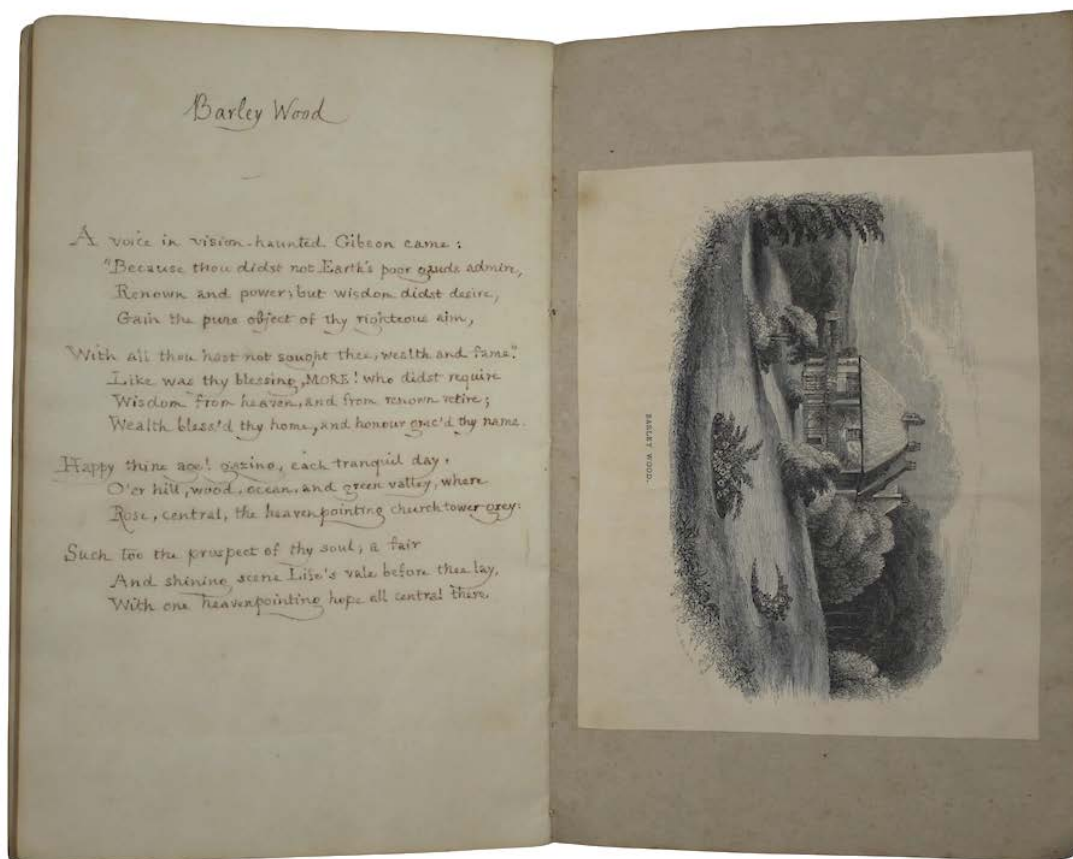 Barley Wood
A voice in vision-haunted Gibeon came:
"Because thou didst not Earth's poor gauds admire,
Renown and power; but wisdom didst desire,
Gain the pure object of thy righteous aim,
With all thou hast not sought thee, wealth and fame."
Like was thy blessing, MORE! who didst require
Wisdom from heaven, and from renown retire;
Wealth bless'd thy home, and honour grac'd thy name.
Happy thine age! gazing, each tranquil day,
O'er hill, wood, ocean, and green valley, where
Rose, central, the heavenpointing church tower grey:
Such too the prospect of thy soul; a fair
And shining scene Life's vale before thee lay,
With one heavenpointing hope all central there.
BARLEY WOOD.